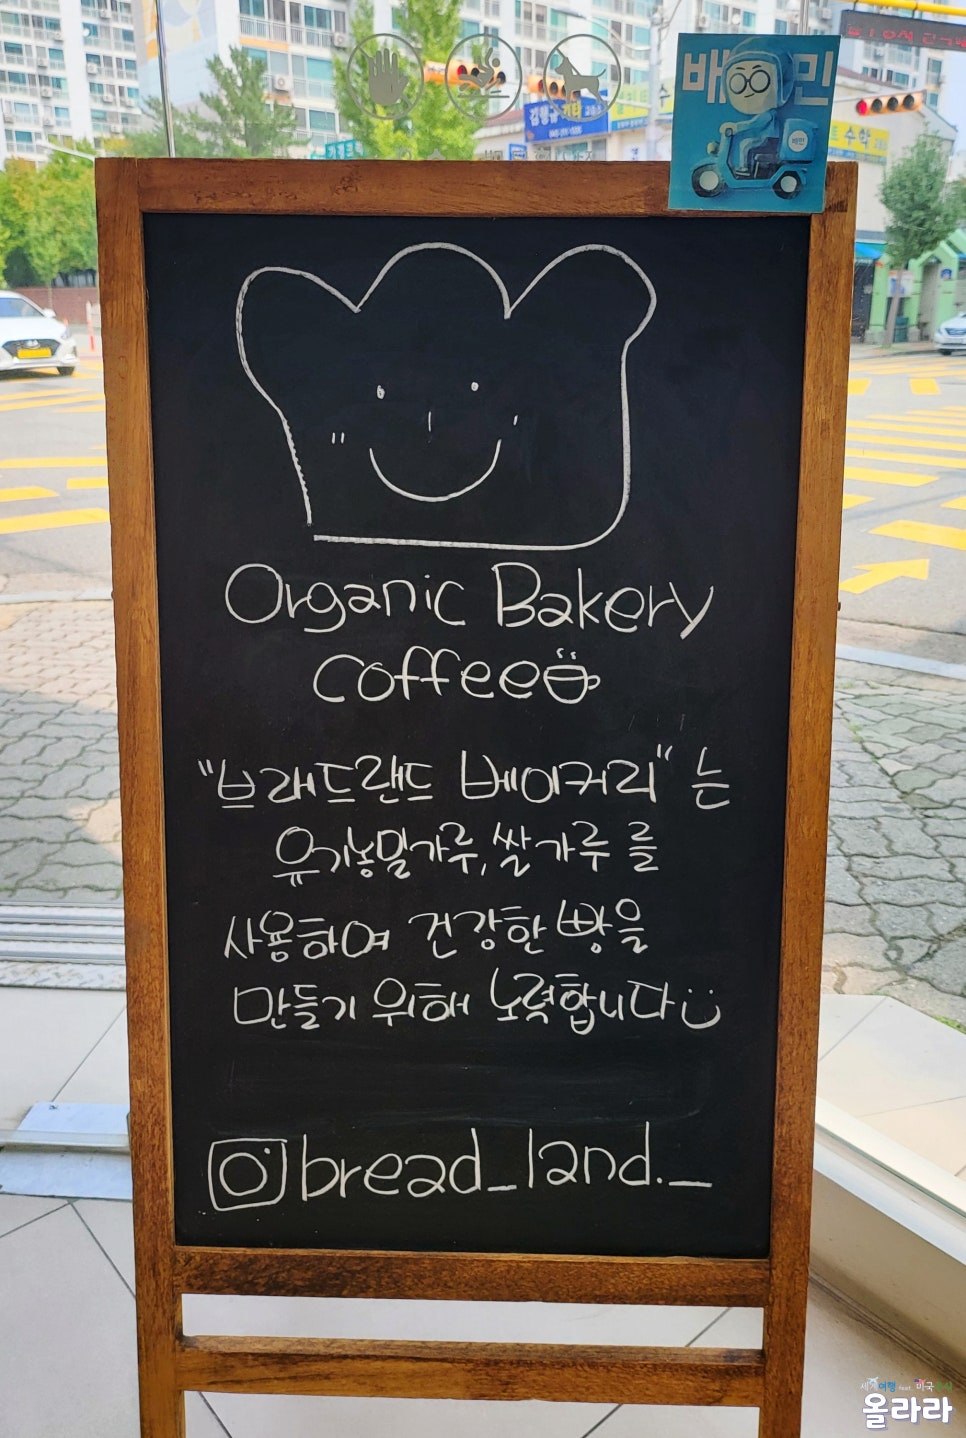 배민
김행금
수학
Organic Bakery
Coffee
"브래드랜드 베이커리"는
유기농밀가루, 쌀가루를
사용하여 건강한 빵을
만들기 위해 노력합니다
bread_land._
올라라